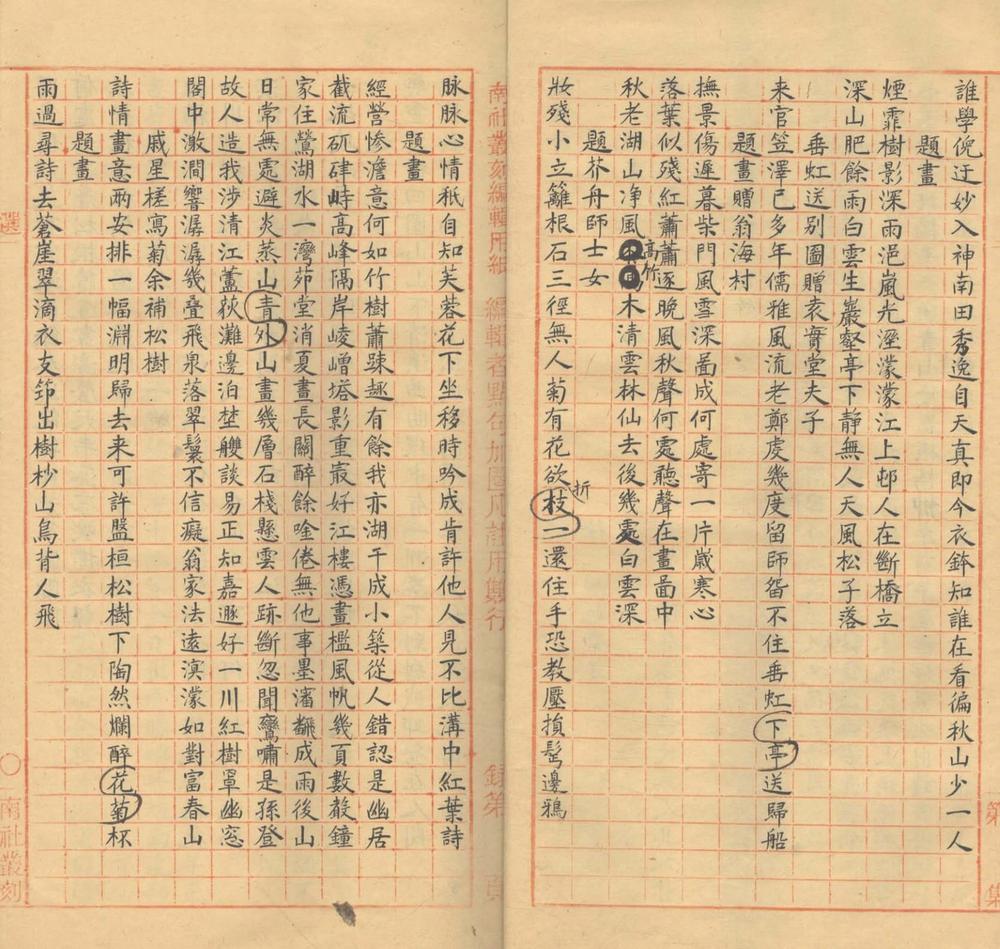 誰學倪迂妙入神南田秀逸自天真即今衣鉢知誰在看徧秋山少一人
題畫
煙霏樹影深雨浥嵐光溼濛濛江上邨人在斷橋立
深山肥餘雨白雲生巖壑亭下靜無人天風松子落
垂虹送别圖贈袁實堂夫子
来官笠澤已多年儒雅風流老鄭虔幾度留師畱不住垂虹下亭送歸船
題畫贈翁海村
撫景傷遲暮柴門風雪深啚成何處寄一片歲寒心
落葉似殘紅蕭蕭逐晚風秋聲何處聽聲在畫啚中
秋老湖山净風高竹木清雲林仙去後幾處白雲深
題芥舟師士女
妝殘小立籬根石三徑無人菊有花欲枝一折還住手恐教壓損髩邊鴉
南社叢刻編輯用紙 編輯者點句加圈凡註用雙行 錄第 頁
脉脉心情秖自知芙蓉花下坐移時吟成肯許他人見不比溝中紅葉詩
題畫
經營慘澹意何如竹樹蕭疎趣有餘我亦湖干成小築從人錯認是幽居
截流矶硉峙高峰隔岸崚嶒塔影重最好江樓憑畫檻風帆幾頁數聲鐘
家住鶯湖水一灣茆堂消夏晝長關醉餘唫倦無他事墨瀋飜成雨後山
日常無處避炎蒸山青外山畫幾層石棧懸雲人跡斷忽聞鸞嘯是孫登
故人造我涉清江蘆荻灘邊泊埜艭談易正知嘉遯好一川紅樹罩幽窓
閣中激澗響潺潺幾疊飛泉落翠鬟不信癡翁家法遠溟濛如對富春山
戚星槎寓菊余補松樹
詩情畫意兩安排一幅淵明歸去来可許盤桓松樹下陶然爛醉花菊杯
題畫
雨過尋詩去蒼崖翠滴衣支笻出樹杪山鳥背人飛
選
南社叢刻
第 集